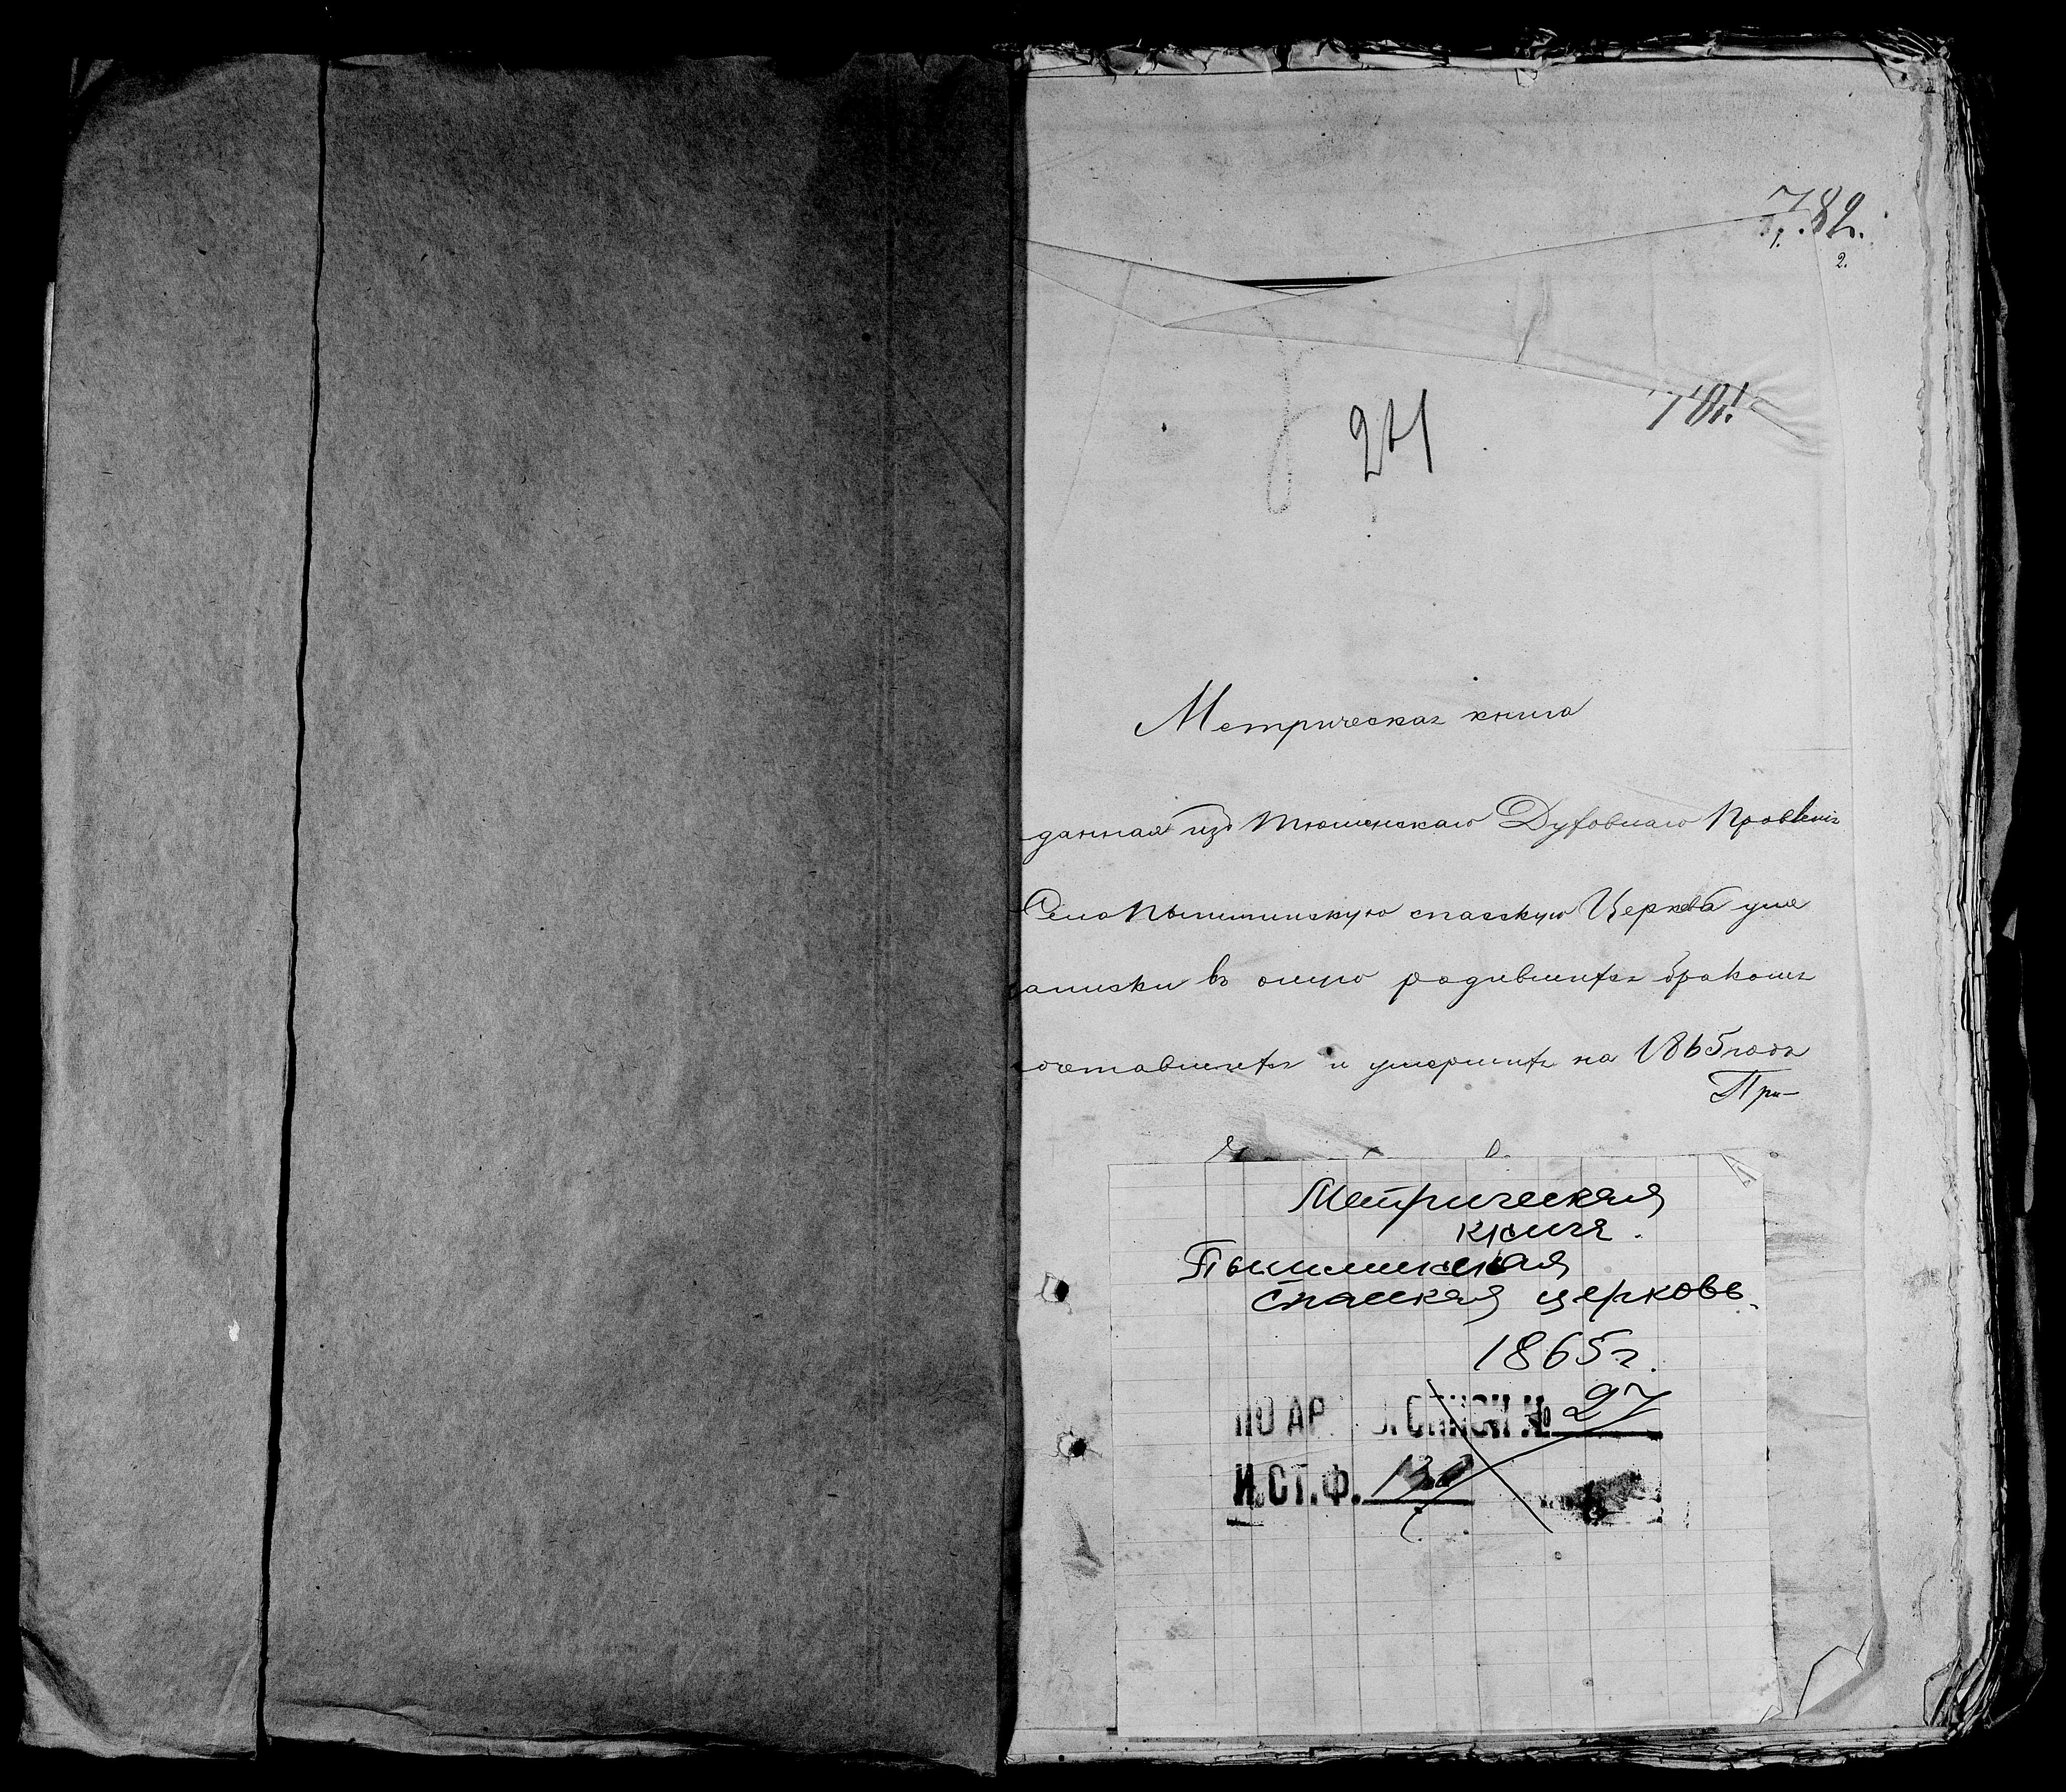 782.
2.
781.
241
Метрическая книга
данная изъ Тюменскаго Духовнаго Правленія
Село Пышминскую спасскую Церковь для
записки въ оную родившихся бракомъ
сочетавшихся и умершихъ на 1865 годъ
При-
Метрическая
книга.
Пышминская
спасская церковь.
1865 г.
ПО АР СПИСИ № 27
И.СТ.Ф.